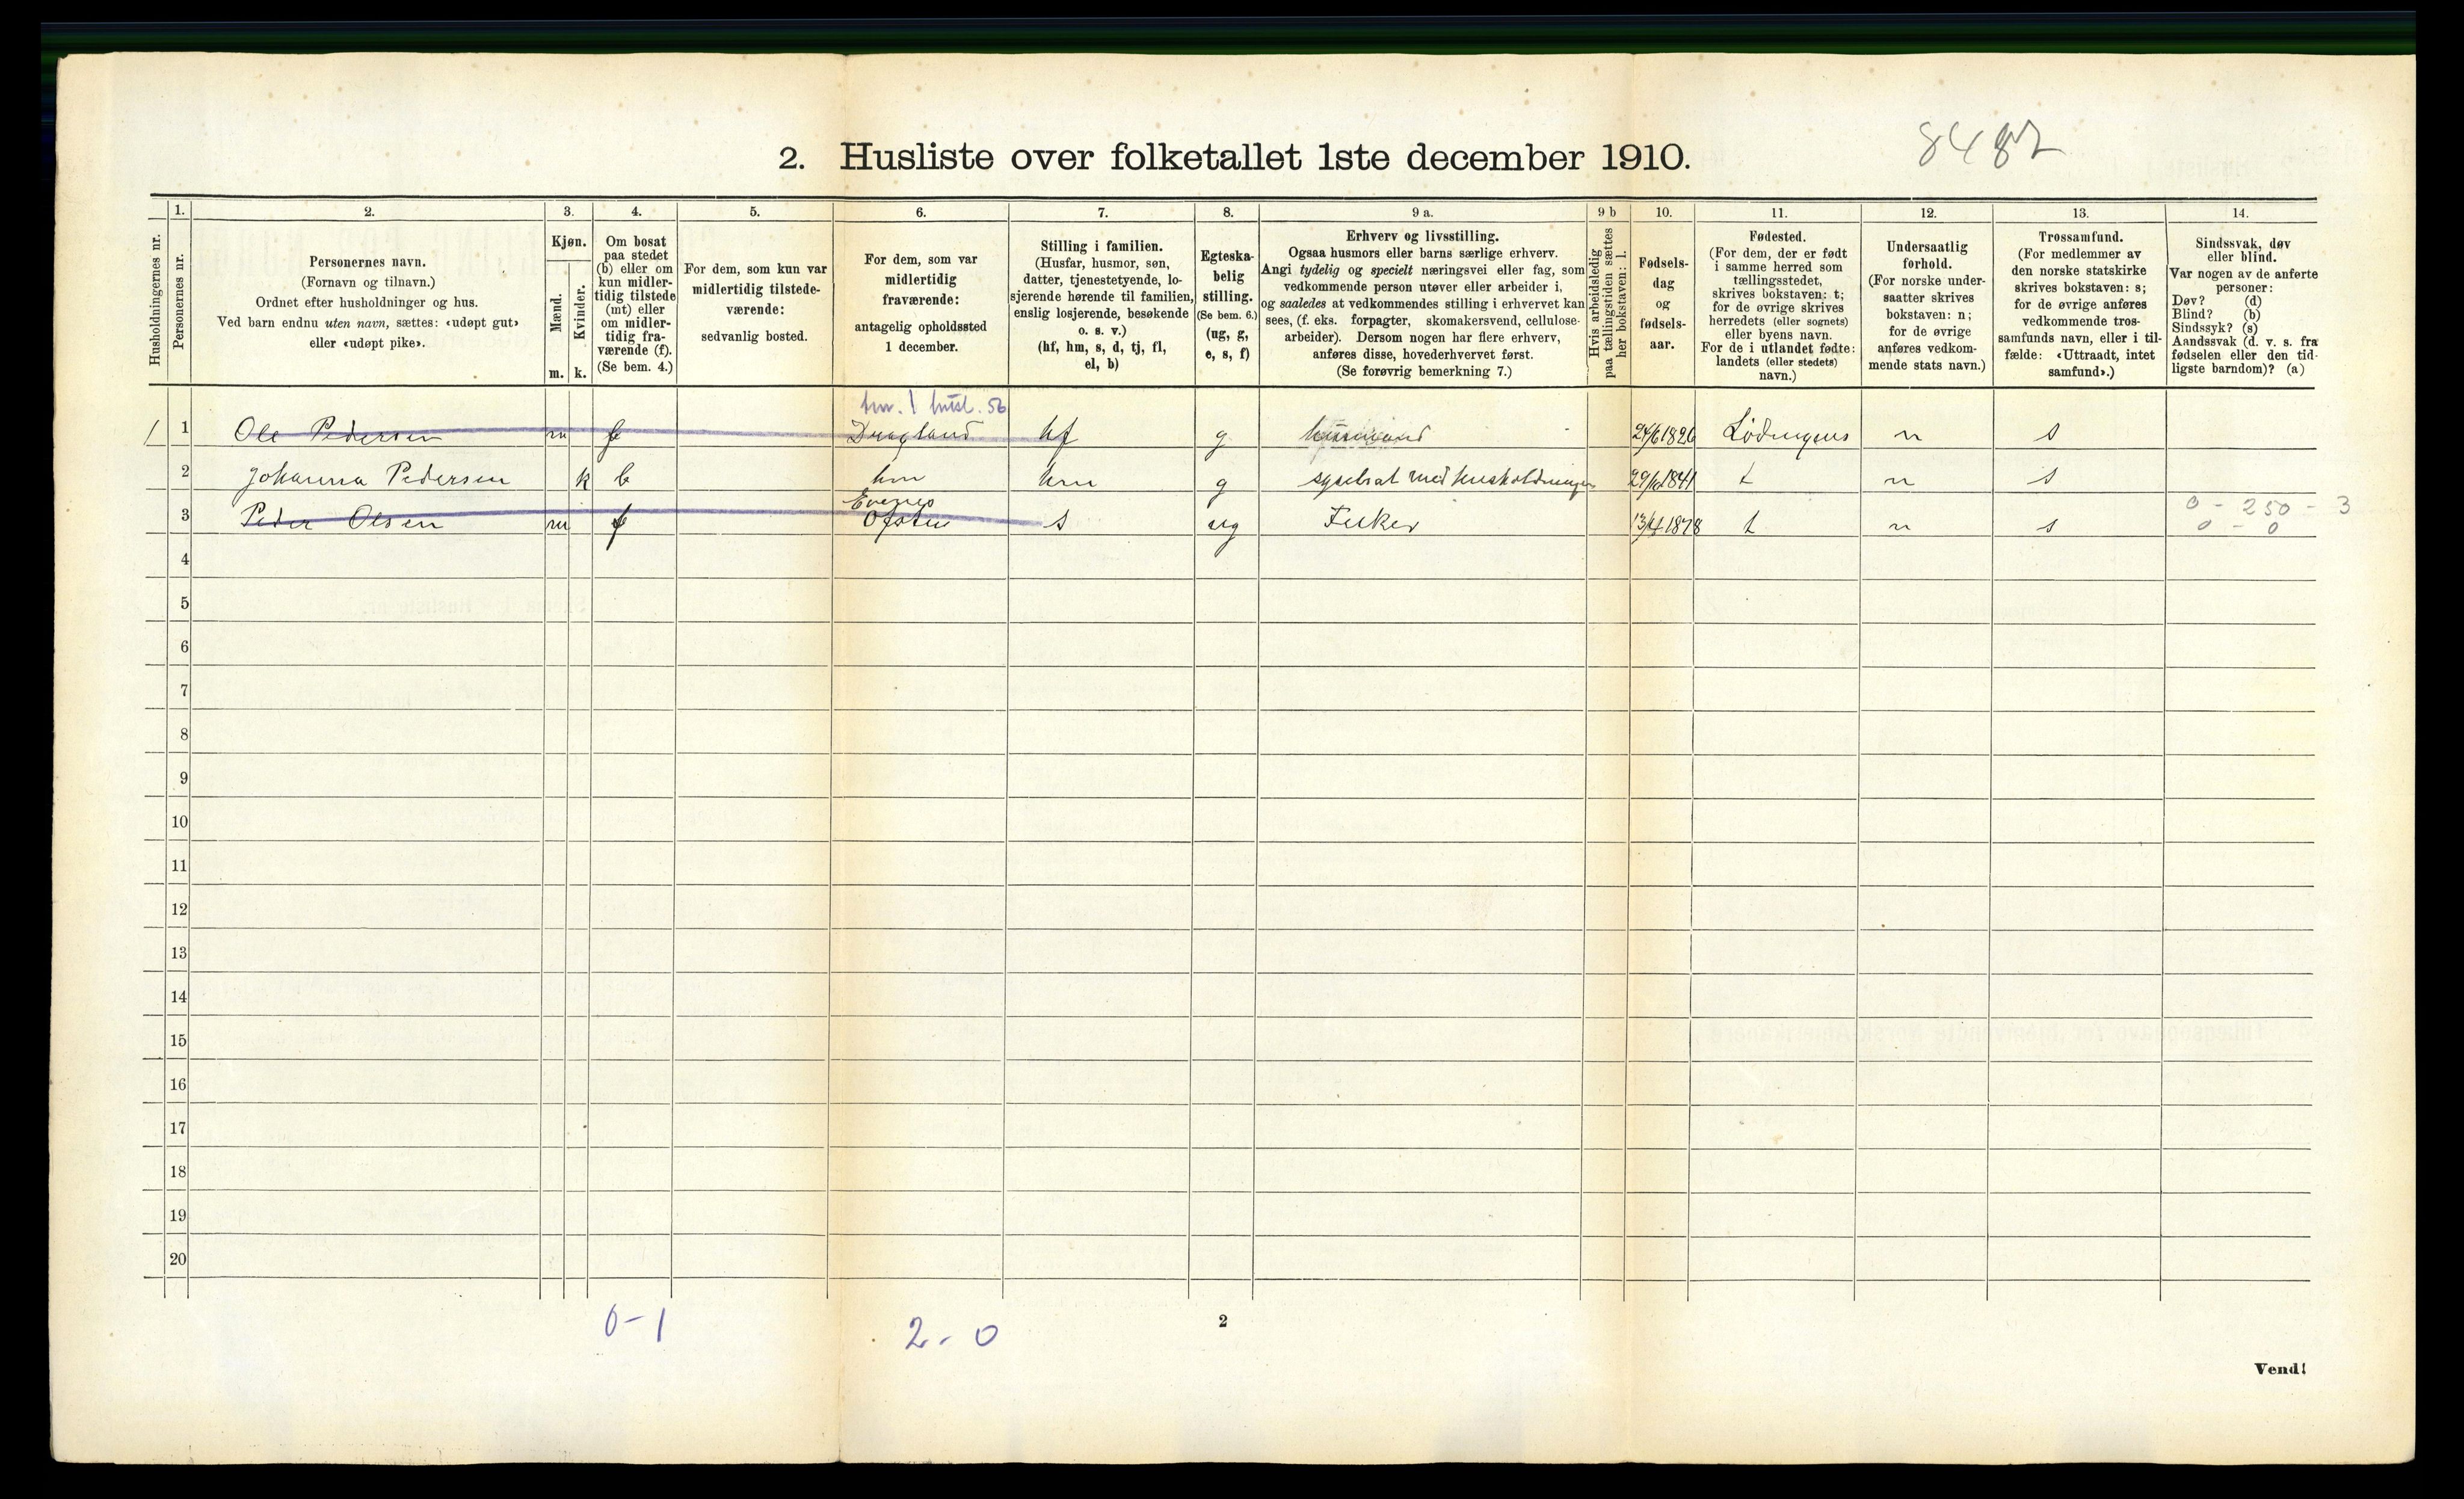 8482
2. Husliste over folketallet 1ste december 1910.
Husholdningernes nr.
1.
Personernes nr.
2.
Personernes navn.
(Fornavn og tilnavn.)
Ordnet efter husholdninger og hus.
Ved barn endnu uten navn, sættes: «udøpt gut»
eller «udøpt pike».
3.
Kjøn.
Mænd.
Kvinder.
m. k.
4.
Om bosat
paa stedet
(b) eller om
kun midler-
tidig tilstede
(mt) eller
om midler-
tidig fra-
værende (f).
(Se bem. 4.)
5.
For dem, som kun var
midlertidig tilstede-
værende:
sedvanlig bosted.
6.
For dem, som var
midlertidig
fraværende:
antagelig opholdssted
1 december.
7.
Stilling i familien.
(Husfar, husmor, søn,
datter, tjenestetyende, lo-
sjerende hørende til familien,
enslig losjerende, besøkende
o. s. v.)
(hf, hm, s, d, tj, fl,
el, b)
8.
Egteska-
belig
stilling.
(Se bem. 6.)
(ug, g,
e, s, f)
9 a.
Erhverv og livsstilling.
Ogsaa husmors eller barns særlige erhverv.
Angi tydelig og specielt næringsvei eller fag, som
vedkommende person utøver eller arbeider i,
og saaledes at vedkommendes stilling i erhvervet kan
sees, (f. eks. forpagter, skomakersvend, cellulose-
arbeider). Dersom nogen har flere erhverv,
anføres disse, hovederhvervet først.
(Se forøvrig bemerkning 7.)
9 b
Hvis arbeidsledig
paa tællingstiden sættes
her bokstaven: l.
10.
Fødsels-
dag
og
fødsels-
aar.
11.
Fødested.
(For dem, der er født
i samme herred som
tællingsstedet,
skrives bokstaven: t;
for de øvrige skrives
herredets (eller sognets)
eller byens navn.
For de i utlandet fødte:
landets (eller stedets)
navn.)
12.
Undersaatlig
forhold.
(For norske under-
saatter skrives
bokstaven: n;
for de øvrige
anføres vedkom-
mende stats navn.)
13.
Trossamfund.
(For medlemmer av
den norske statskirke
skrives bokstaven: s;
for de øvrige anføres
vedkommende tros-
samfunds navn, eller i til-
fælde: «Uttraadt, intet
samfund».)
14.
Sindssvak, døv
eller blind.
Var nogen av de anførte
personer:
Døv? (d)
Blind? (b)
Sindssyk? (s)
Aandssvak (d. v. s. fra
fødselen eller den tid-
ligste barndom)? (a)
56
1 1 Ole Pedersen m f Dragland hf g 24/6 1826 Lødingens n s
2 Johanna Pedersen k b hm hm g sysselsat med husholdningen 1841 t n s
Evenes
3 Peder Olsen m f Ofoten s ug Fisker 1878 t n s
0 - 250 - 3
0 - 0
4
5
6
7
8
9
10
11
12
13
14
15
16
17
18
19
20
0-1
2-0
2
Vend!